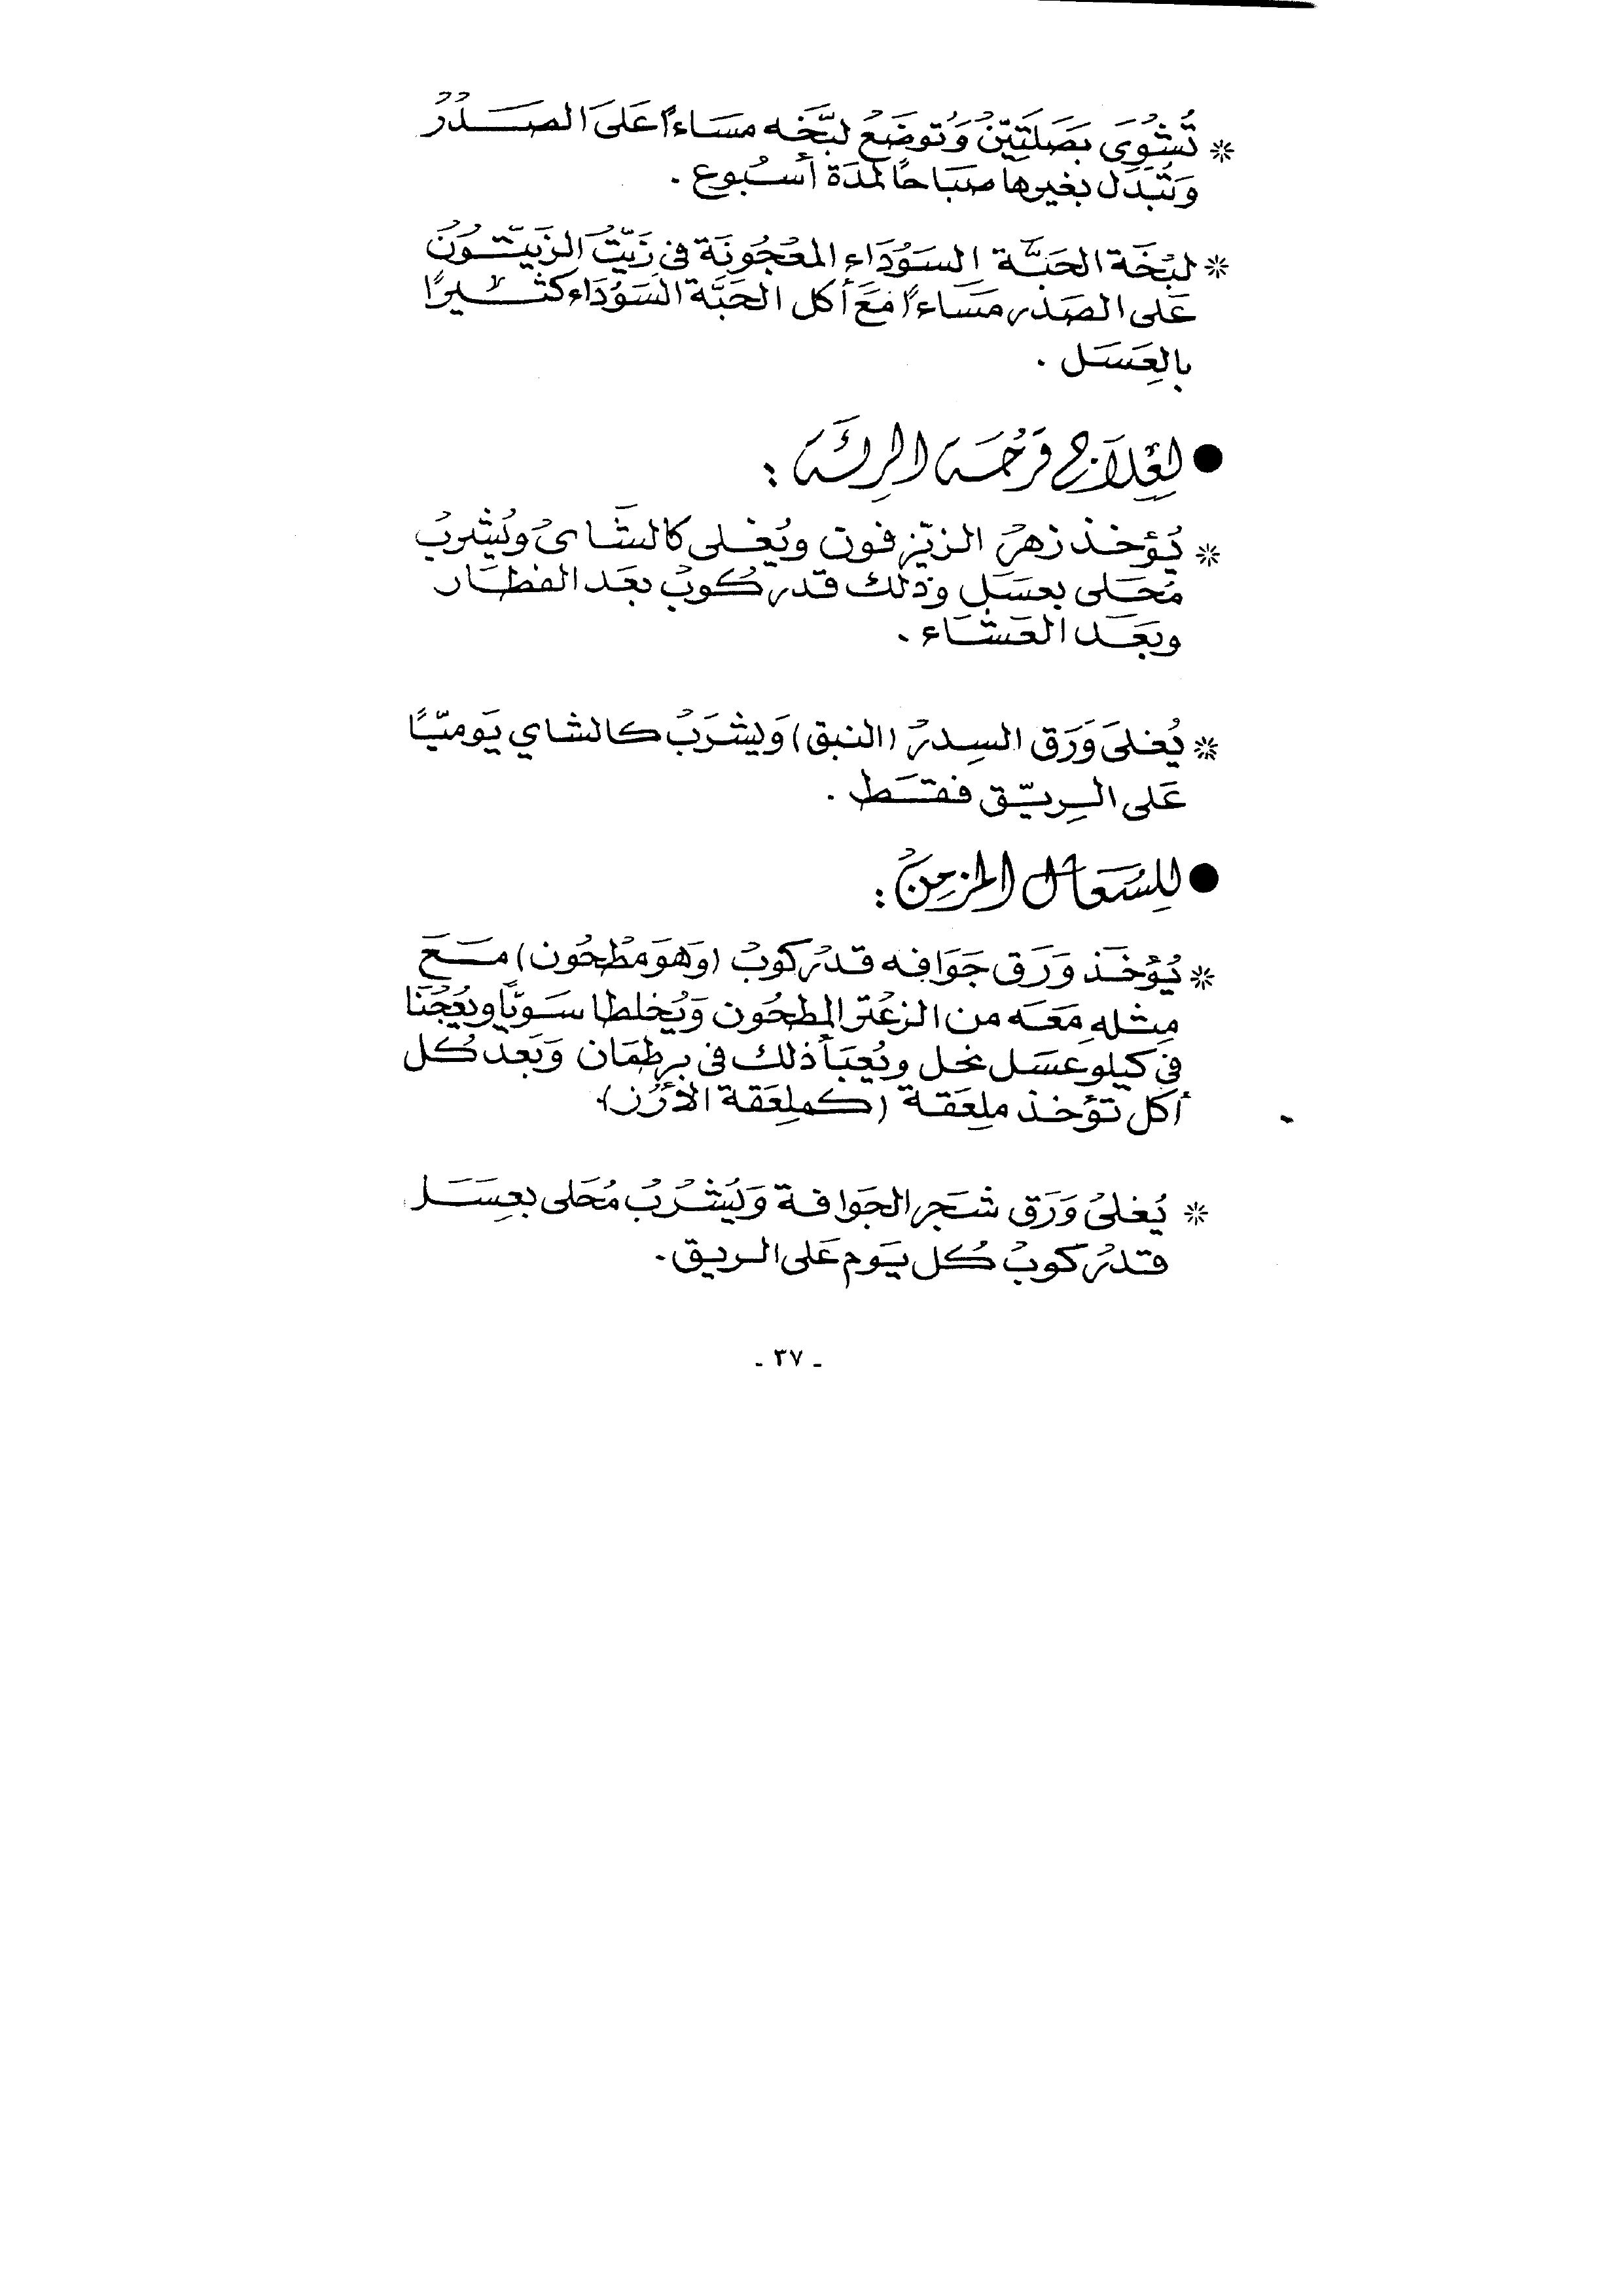 * تُشْوَى بَصَلَتَيّنْ وَتُوضَعْ لبَّخَه مسَاءاً عَلىَ الصَدْرْ
وَتُبَدَل بغيرها صبَاحًا لمدَة أسْبُوع .
* لبْخَة الحَبَّة السَوْدَاء المعْجُونَة فى زَيّتْ الزَيتُونْ
عَلى الصَدْر مسَاءاً مَعَ أكل الحَبَّة السَوْدَاء كثيرًا
بالعِسَل .
● لعِلاَج قرْحَة الرئَة :
* يُؤخذ زهرْ الزيّزفون ويُغلى كالشَاىْ ويُشربْ
مُحَلى بعسَل وَذلك قدر كُوبْ بعَد الفطَار
وبعَد العَشَاء .
* يُغلىَ وَرَق السِدرْ (النبق) وَيشرَبْ كالشاي يَوميًّا
عَلى الرِيّق فقَط .
● للِسُعَال المزمِنْ :
* يُؤْخَذ وَرَق جَوَافِه قدْر كوبْ (وَهوَ مَطْحُون) مَعَ
مِثلهِ مَعَه من الزعْتر المطحُون وَيُخلطا سَويًّا ويُعْجْنَا
في كيلو عسَل نحل ويُعبَأ ذلك فى برطمَان وَبَعدْ كُل
أكل تؤخذ ملِعَقة (كملِعَقة الأرُز).
* يُغلىْ وَرَق شجَر الجَوافة وَيُشْرَبْ مُحَلى بعِسَل
قدرْ كوبْ كُل يَوم عَلى الريق .
- ٣٧ -